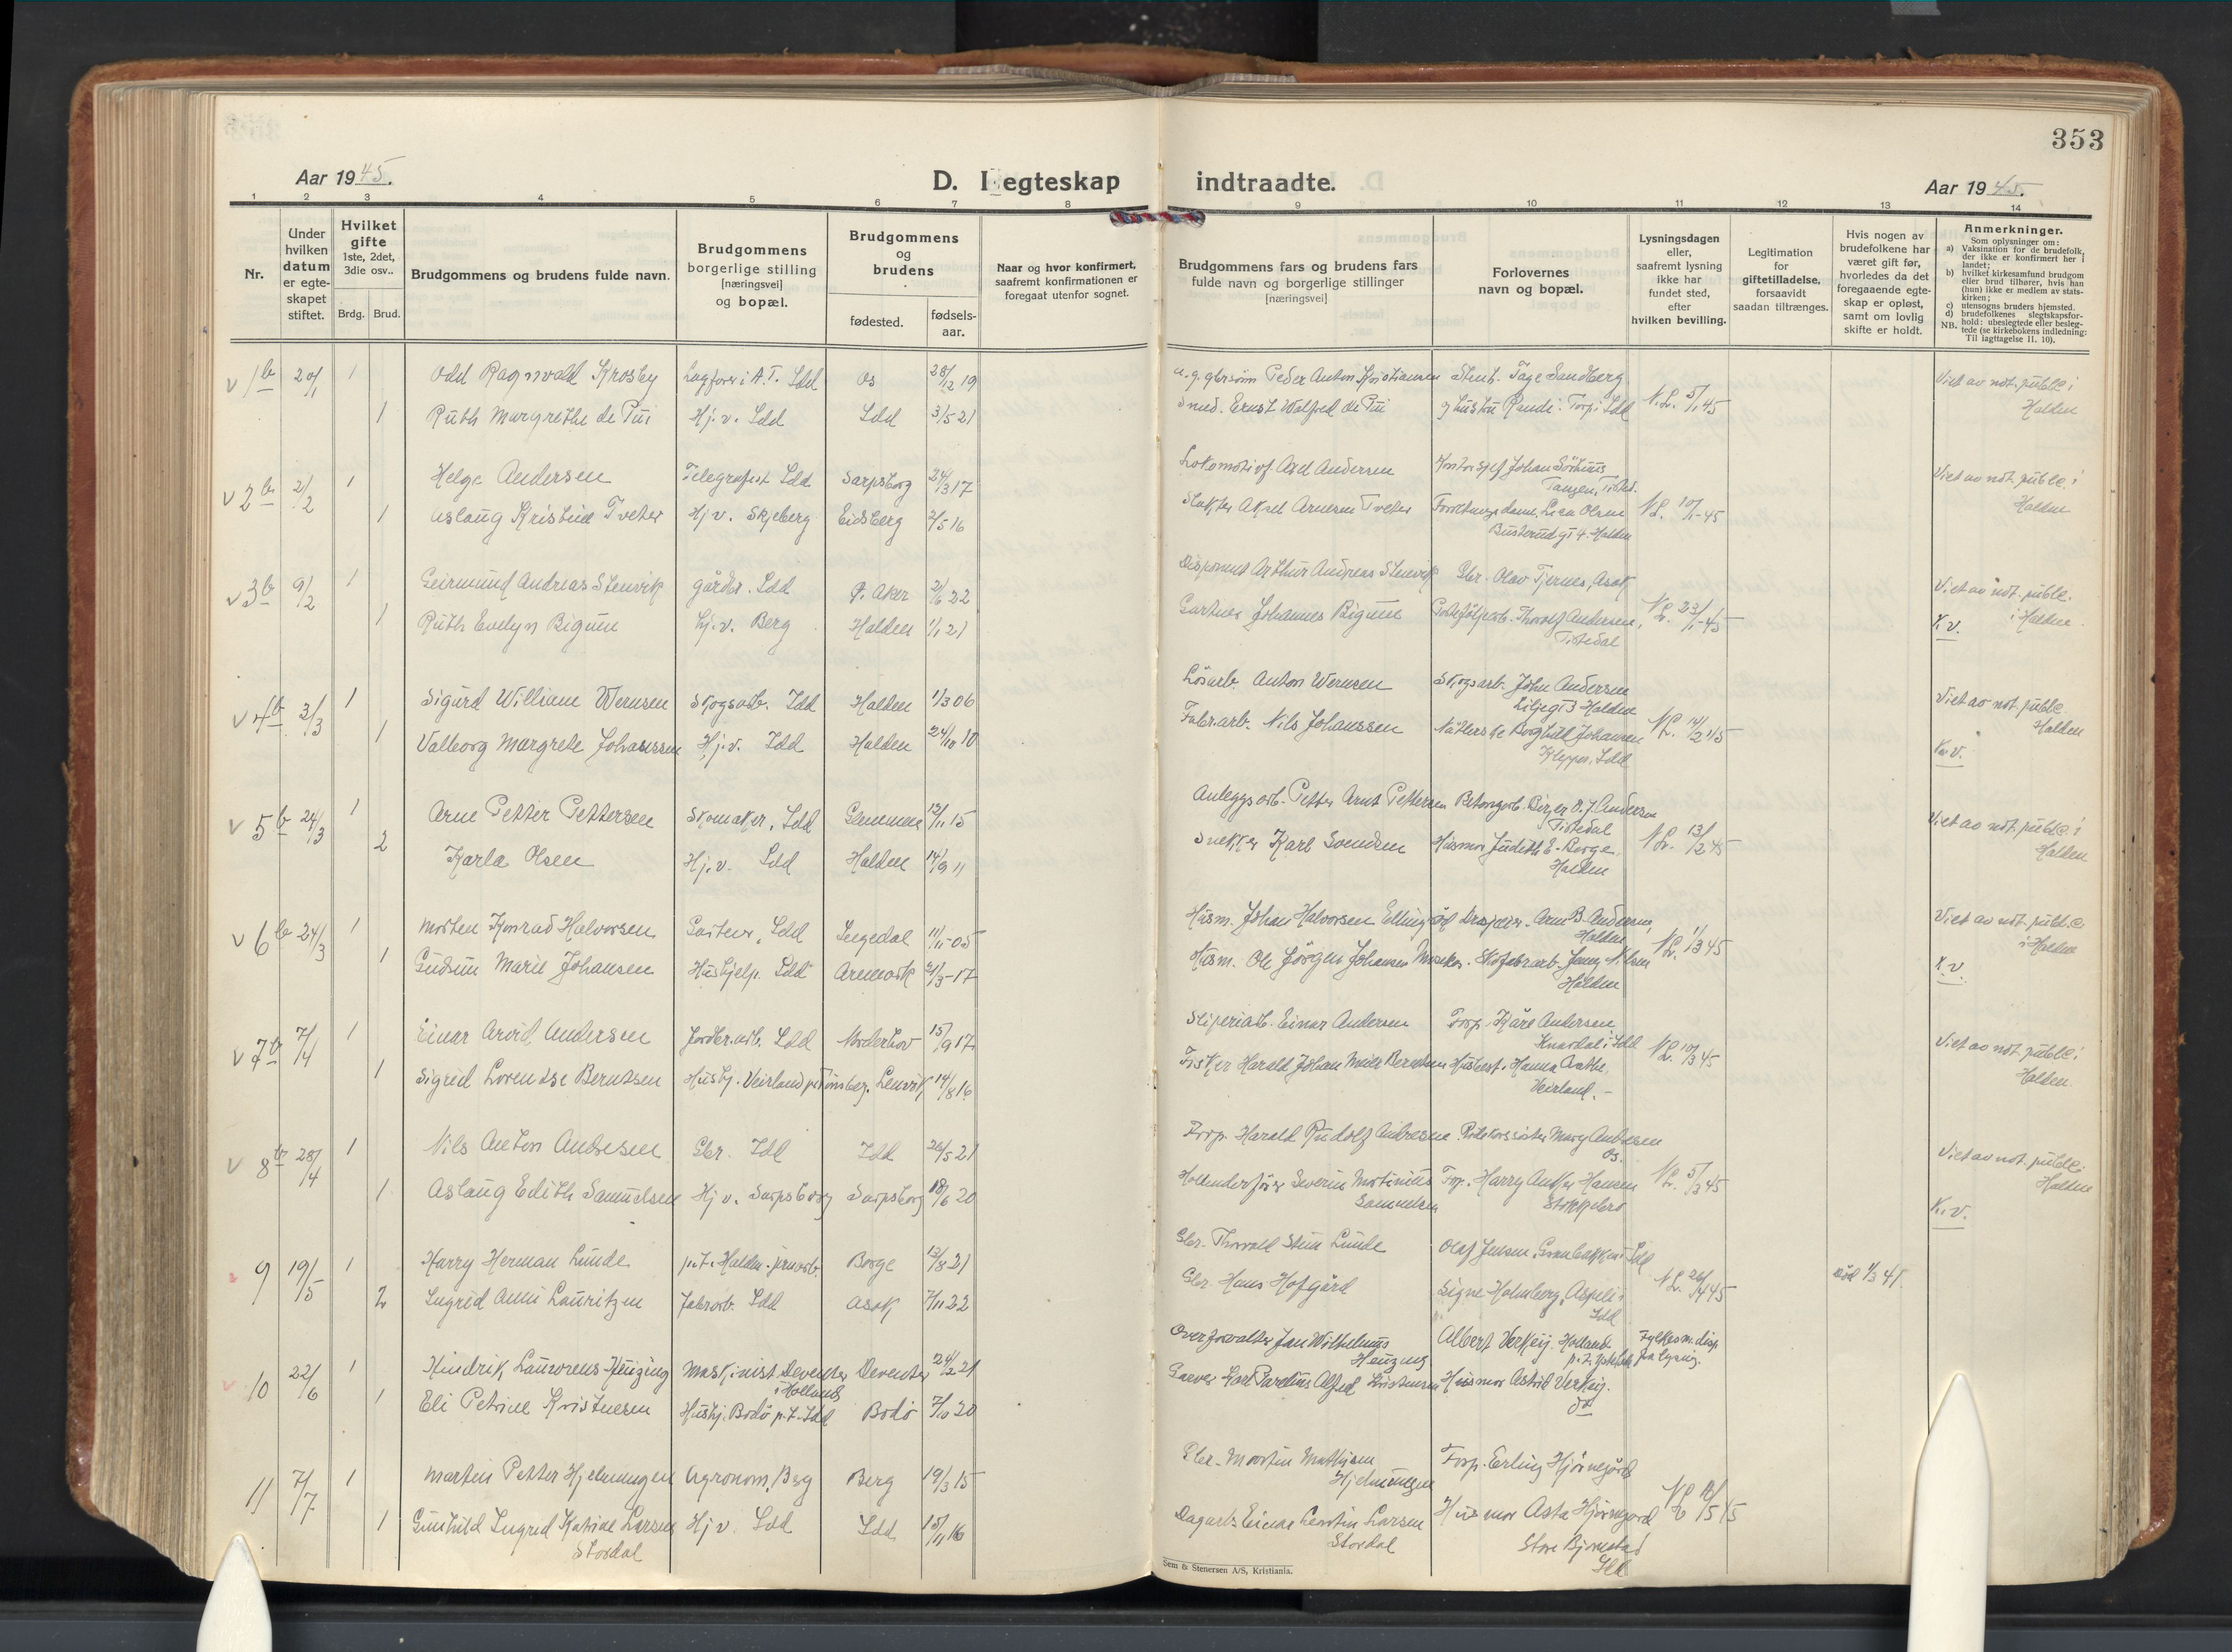 353
Aar 1945.
D. I egteskap indtraadte.
Aar 1945.
1 2 3 4 5 6 7 8 9 10 11 12 13 14
Nr.
Under hvilken datum er egte-skapet stiftet.
Hvilket gifte 1ste, 2det, 3die osv..
Brdg. Brud.
Brudgommens og brudens fulde navn.
Brudgommens borgerlige stilling [næringsvei] og bopæl.
Brudgommens og brudens
fødested.
fødsels-aar.
Naar og hvor konfirmert, saafremt konfirmationen er foregaat utenfor sognet.
Brudgommens fars og brudens fars fulde navn og borgerlige stillinger [næringsvei]
Forlovernes navn og bopæl.
Lysningsdagen eller, saafremt lysning ikke har fundet sted, efter hvilken bevilling.
Legitimation for giftetilladelse, forsaavidt saadan tiltrænges.
Hvis nogen av brudefolkene har været gift før, hvorledes da det foregaaende egte-skap er opløst, samt om lovlig skifte er holdt.
Anmerkninger.
Som oplysninger om:
a) Vaksination for de brudefolk, der ikke er konfirmert her i landet;
b) hvilket kirkesamfund brudgom eller brud tilhører, hvis han (hun) ikke er medlem av stats-kirken;
c) utensogns bruders hjemsted.
d) brudefolkenes slegtskapsfor-hold: ubeslegtede eller besleg-tede (se kirkebokens indledning:
NB. Til iagttagelse II. 10).
v 1b 20/1 1 Odd Ragnvald Krosby Lagfører i A.T. Idd Os 28/12 19 Peder Anton Kristiansen Tage Sandberg Viet av not. publ. i
1 Ruth Margrethe de Pui Hj.v. Idd Idd 3/5 21 Smed. Ernst Walfred de Pui Randi Torp i Idd N.L. 5/1 45 Halden
v 2b 2/2 1 Helge Andersen Telegrafist Idd Sarpsborg 24/3 17 Lokomotivf. Axel Andersen Johan Sörhuus Viet av not. publ. i
Tangen, Tisted.
1 Aslaug Kristine Tveter Hj.v. Skjeberg Eidsberg 2/5 16 Slakter Aksel Arnesen Tveter Lien Olsen N.L. 10/1-45 Halden
Busterudgt 4 Halden
v 3b 9/2 1 Geirmund Andreas Stenvik gårdbr. Idd Ø. Aker 2/6 22 Disponent Arthur Andreas Stenvik Gbr. Olav Tjernes, Asak Viet av not. publ.
1 Ruth Evelyn Bigum Hj.v. Berg Halden 1/1 21 Gartner Johannes Bigum Thorolf Andersen, N.L. 23/1-45 i Halden
Tistedal K.v.
v 4b 3/3 1 Sigurd William Wernsen Skogsarb. Idd Halden 1/3 06 Løsarb. Anton Wernsen Skogsarb. John Andersen Viet av not. publ.
Liljegt 3 Halden Halden
1 Valborg Margrete Johanssen Hj.v. Idd Halden 24/10 10 Fabr.arb. Nils Johanssen Borghild Johansen N.L. 14/2 45
Klepper, Idd K.v.
v 5b 24/3 1 Arne Petter Pettersen Skomaker, Idd Glemmen 12/11 15 Anleggsarb. Petter Arnt Pettersen Betongarb. Birger O. J. Andersen Viet av not. publ. i
Tistedal Halden
2 Karla Olsen Hj.v. Idd Halden 14/9 11 Snekker Karl Svendsen Husmor Judith E. Borge N.L. 13/2 45
Halden
v 6b 24/3 1 Morten Konrad Halvorsen Gartner, Idd Ingedal 11/11-05 Husm. Johan Halvorsen Ellingröd Arne B. Andersen, Viet av not. publ.
Halden i Halden
1 Gudrun Marie Johansen Hushjelp. Idd Aremark 21/3-17 Husm. Ole Jörgen Johansen Skofabrarb. Jenny Nilsen N.L. 1/3 45
Halden K.v.
v 7b 7/4 1 Einar Arvid Andersen Jordbr.arb. Idd Norderhov 15/9 17 Sliperiarb. Einar Andersen Forp. Kåre Andersen Viet av not. publ. i
Knardal i Idd N.L. 10/3 45 Halden
1 Sigrid Lorendse Berntsen Hushj. Veierland pr. Tønsberg. Lenvik 14/8 16 Fisker Harald Johan Berntsen Hanna
Veierland.
v 8b 28/4 1 Nils Anton Andresen Gbr. Idd Idd 26/5 21 Forp. Harald Rudolf Andresen Mary Andresen Viet av not. publ.
Os. Halden
1 Aslaug Edith Samuelsen Hj.v. Sarpsborg Sarpsborg 18/6 20 Severin Martinius Forp. Harry Anker Hansen N.L. 5/3 45
Samuelsen K.v.
9 19/5 1 Harry Herman Lunde p.t. Halden jernarb. Borge 13/8 21 Gbr. Thorvald Stein Lunde Olaf Jensen, Granbakken Idd
2 Ingrid Anni Lauritzen Fabrarb. Idd Asak 7/11 22 Gbr. Hans Hofgård Signe Holmberg, Aspeli i N.L. 26/4 45 död 1/3 41.
Idd
10 22/6 1 Hindrik Lauwrens Heuzing Maskinist Deventer Deventer 24/2 21 Overforvalter Jan Wilhelmus Albert Verkeij. Holland Fylkesm. disp.
i Holland Heuzing p.t. fra lysning.
1 Eli Petrine Kristensen Hushj. Bodö p.t. Idd Bodö 7/10 20 Paulius Alfred Kristensen Husmor Astrid Verkeij.
do
11 7/7 1 Martin Petter Hjelmungen Agronom, Berg Berg 19/3 15 Gbr. Martin Mathisen Forp. Erling Hjörnegård
Hjelmungen
1 Gunhild Ingrid Katrine Larsen Hj.v. Idd Idd 15/11 16 Dagarb. Einar Larsen Husmor Asta Hjörnegård N.L. 45
Stordal Stordal Store Bjørnstad
Idd
Sem & Stenersen A/S, Kristiania.